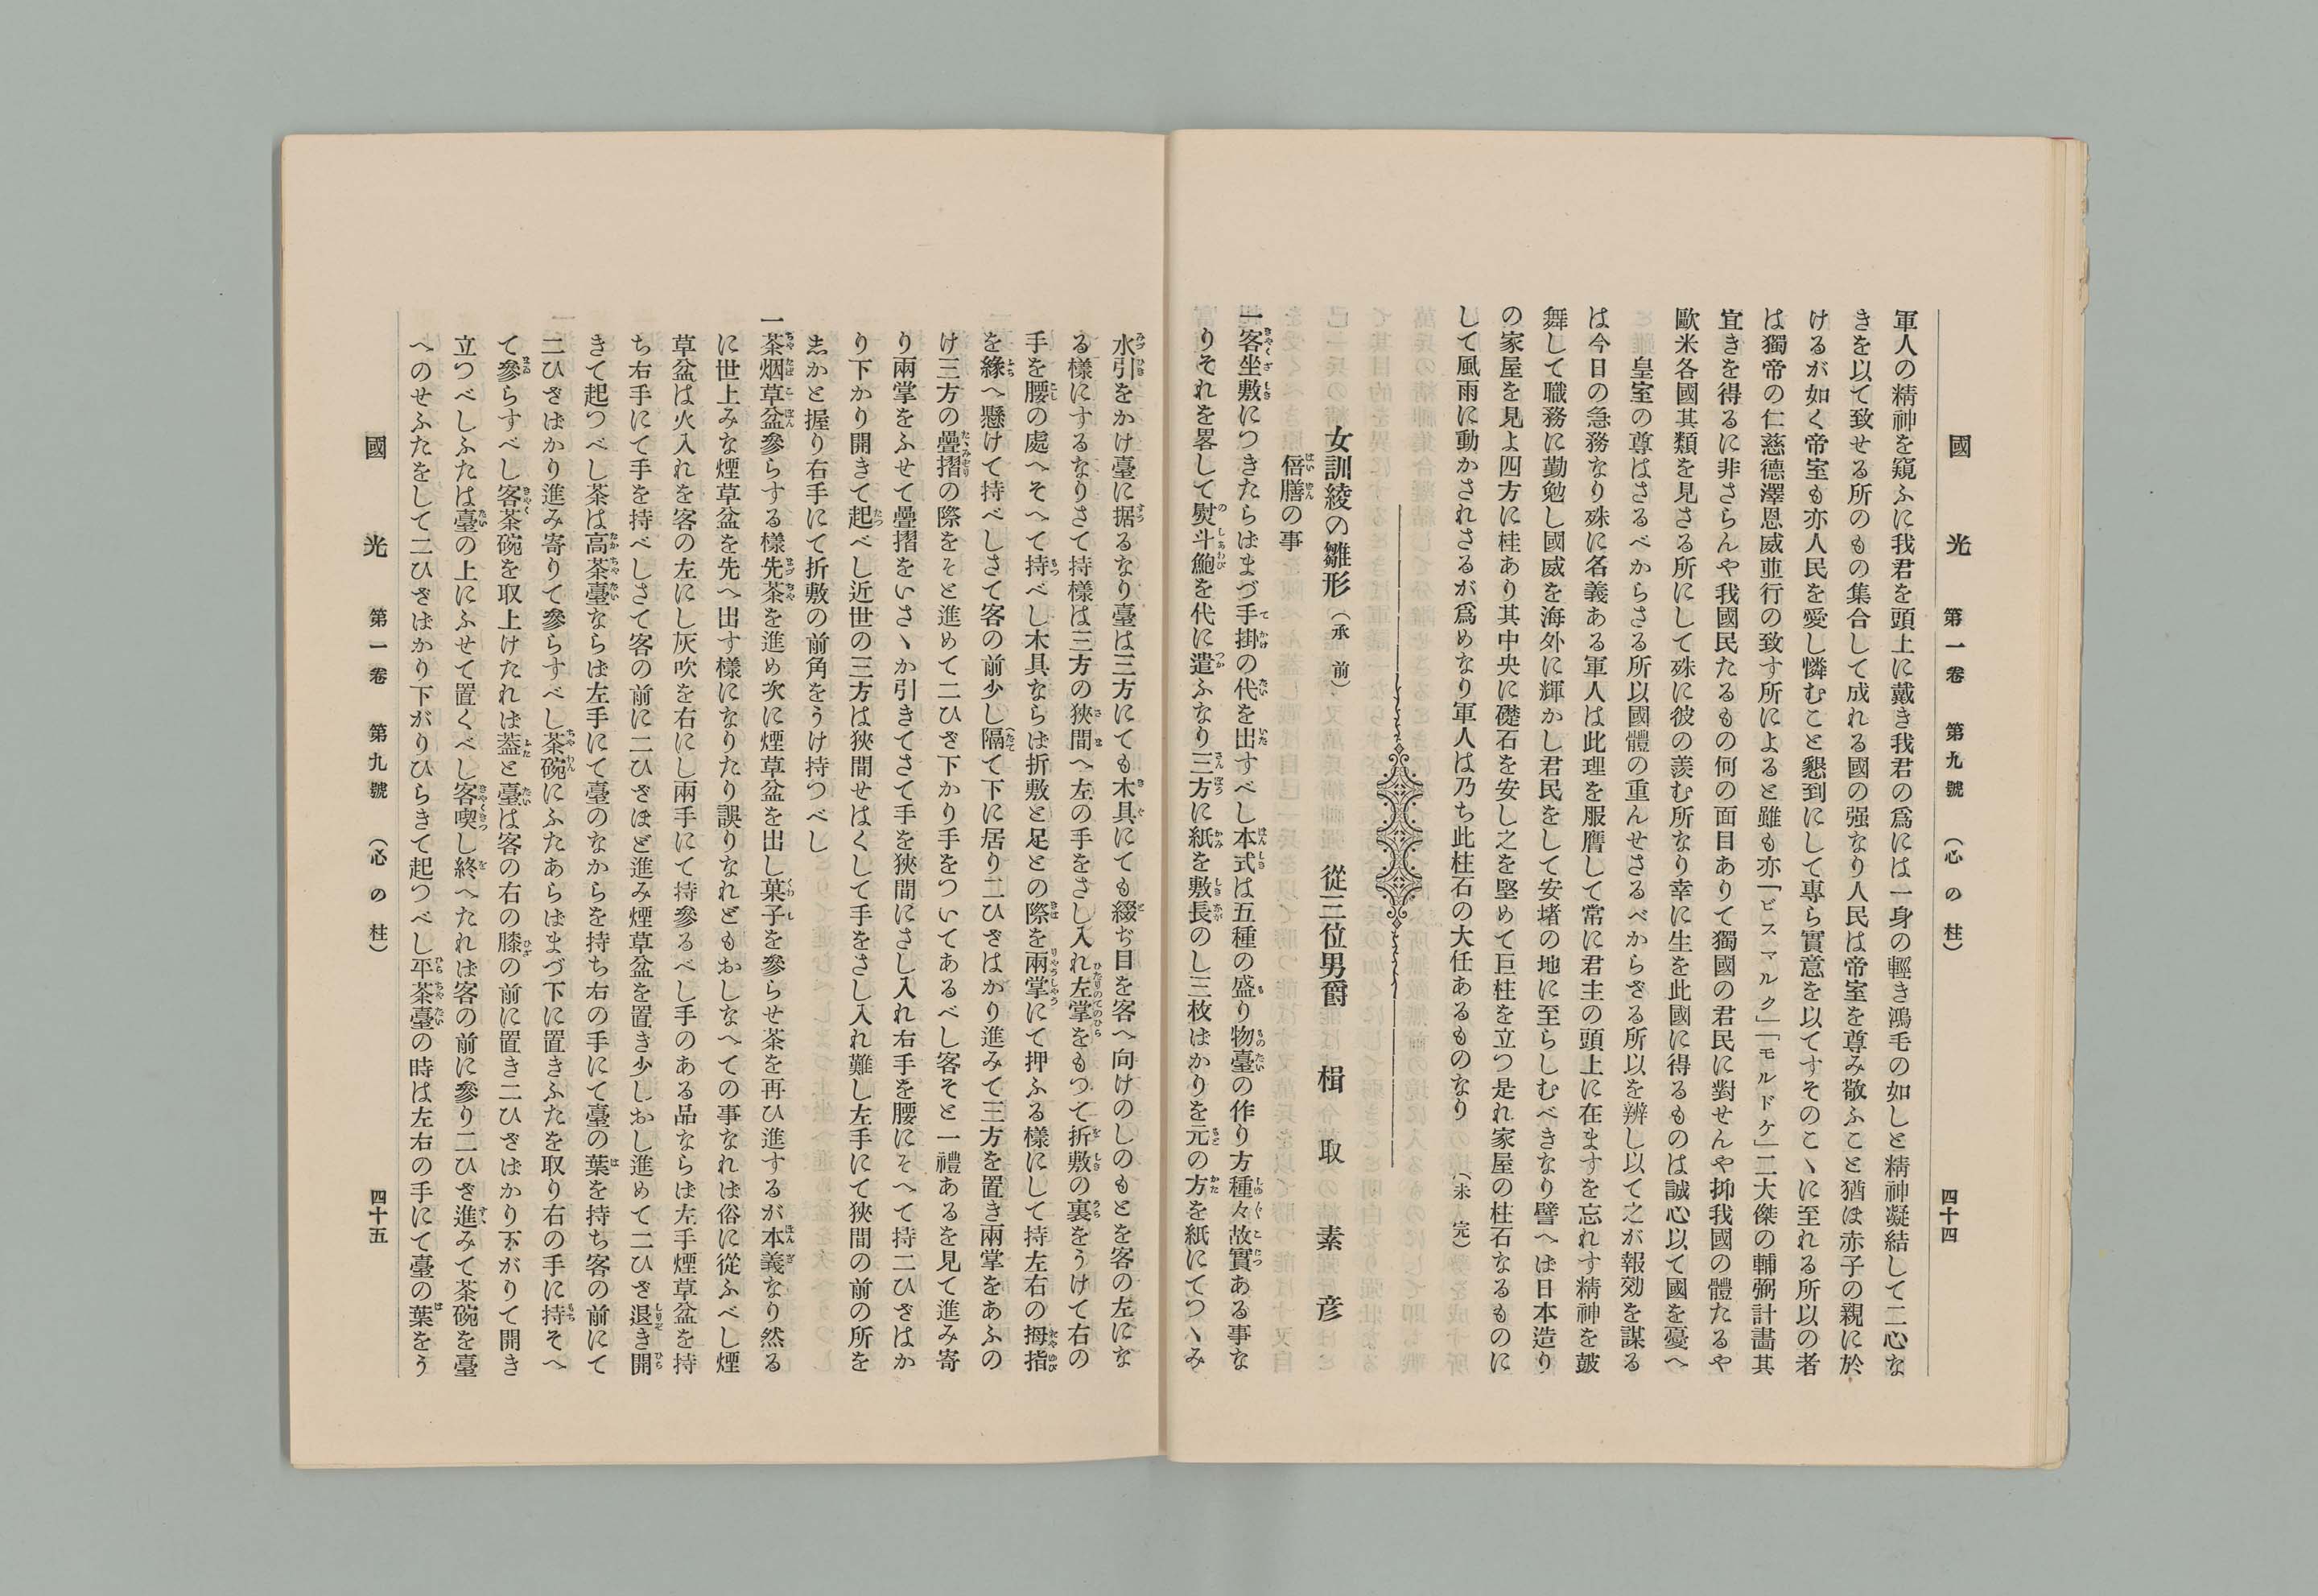 國光 第一卷 第九號 (心の柱) 四十四
軍人の精神を窺ふに我君を頭上に戴き我君の爲には一身の輕き鴻毛の如しと精神凝結して二心な
きを以て致せる所のもの集合して成れる國の强なり人民は帝室を尊み敬ふこと猶ほ赤子の親に於
けるが如く帝室も亦人民を愛し憐むこと懇到にして專ら實意を以てすそのこゝに至れる所以の者
は獨帝の仁慈德澤恩威並行の致す所によると雖も亦「ビスマルク」「モルドケ」二大傑の輔弼計畫其
宜きを得るに非さらんや我國民たるもの何の面目ありて獨國の君民に對せんや抑我國の體たるや
歐米各國其類を見さる所にして殊に彼の羨む所なり幸に生を此國に得るものは誠心以て國を憂へ
皇室の尊はさるべからさる所以國體の重んせさるべからざる所以を辨し以て之が報効を謀る
は今日の急務なり殊に名義ある軍人は此理を服膺して常に君主の頭上に在ますを忘れす精神を皷
舞して職務に勤勉し國威を海外に輝かし君民をして安堵の地に至らしむべきなり譬へは日本造り
の家屋を見よ四方に柱あり其中央に礎石を安し之を堅めて巨柱を立つ是れ家屋の柱石なるものに
して風雨に動かされさるが爲めなり軍人は乃ち此柱石の大任あるものなり (未完)
女訓綾の雛形 (承前) 從三位男爵 楫取素彦
倍膳の事
一客坐敷につきたらはまづ手掛の代を出すべし本式は五種の盛り物臺の作り方種々故實ある事な
りそれを畧して熨斗鮑を代に遣ふなり三方に紙を敷長のし三枚はかりを元の方を紙にてつゝみ
水引をかけ臺に据るなり臺は三方にても木具にても綴ぢ目を客へ向けのしのもとを客の左にな
る樣にするなりさて持樣は三方の狹間へ左の手をさし入れ左掌をもつて折敷の裏をうけて右の
手を腰の處へそへて持べし木具ならは折敷と足との際を兩掌にて押ふる樣にして持左右の拇指
を緣へ懸けて持べしさて客の前少し隔て下に居り二ひざはかり進みて三方を置き兩掌をあふの
け三方の疊摺の際をそと進めて二ひざ下かり手をついてあるべし客そと一禮あるを見て進み寄
り兩掌をふせて疊摺をいさゝか引きてさて手を狹間にさし入れ右手を腰にそへて持二ひざはか
り下かり開きて起べし近世の三方は狹間せはくして手をさし入れ難し左手にて狹間の前の所を
志かと握り右手にて折敷の前角をうけ持つべし
一茶烟草盆參らする樣先茶を進め次に煙草盆を出し菓子を參らせ茶を再ひ進するが本義なり然る
に世上みな煙草盆を先へ出す樣になりたり誤りなれどもおしなへての事なれは俗に從ふべし煙
草盆は火入れを客の左にし灰吹を右にし兩手にて持參るべし手のある品ならは左手煙草盆を持
ち右手にて手を持べしさて客の前に二ひざほど進み煙草盆を置き少しおし進めて二ひざ退き開
きて起つべし茶は高茶臺ならは左手にて臺のなからを持ち右の手にて臺の葉を持ち客の前にて
二ひざはかり進み寄りて參らすべし茶碗にふたあらはまづ下に置きふたを取り右の手に持そへ
て參らすべし客茶碗を取上けたれは葢と臺は客の右の膝の前に置き二ひざはかり下がりて開き
立つべしふたは臺の上にふせて置くべし客喫し終へたれは客の前に參り二ひざ進みて茶碗を臺
へのせふたをして二ひざはかり下がりひらきて起つべし平茶臺の時は左右の手にて臺の葉をう
國光 第一卷 第九號 (心の柱) 四十五